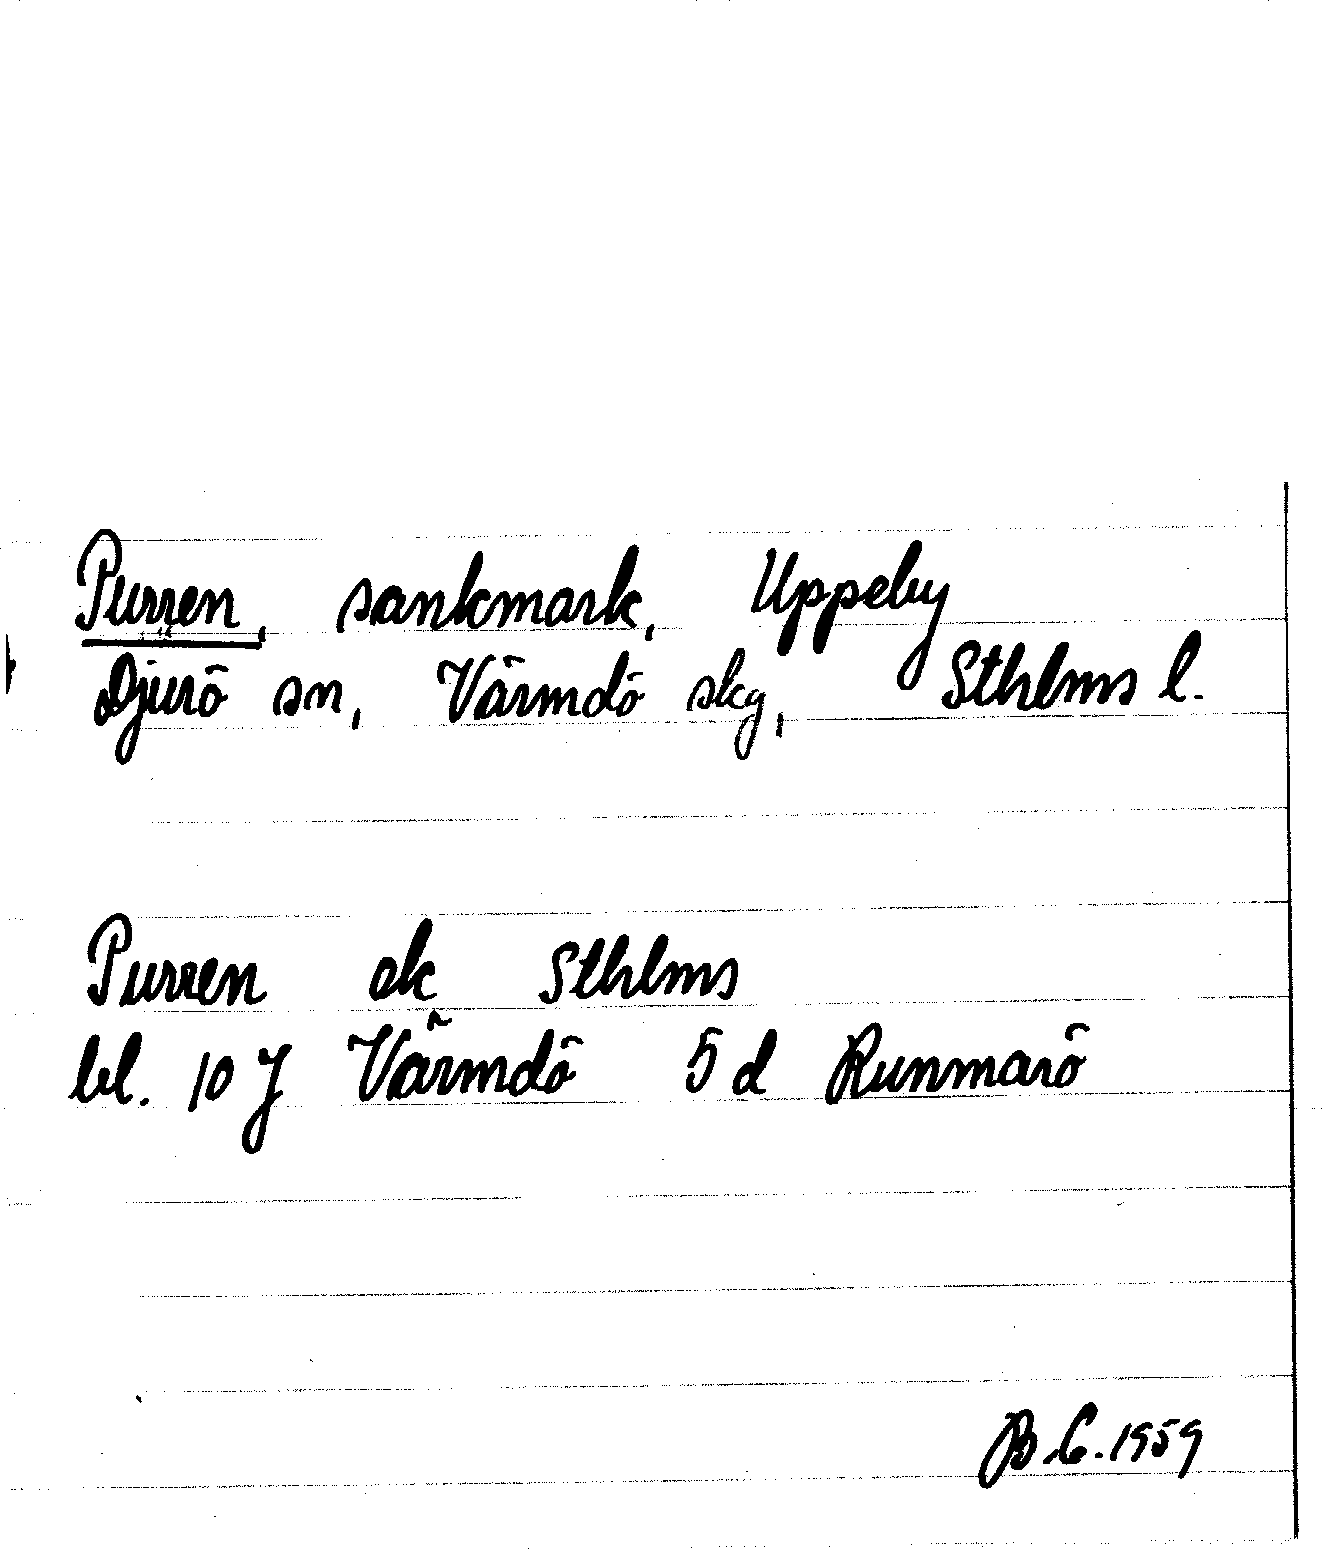 Purren, sankmark, Uppeby
Djurö sn, Värmdö skg, Sthlms l.
Purren ek Sthlms
bl. 10 J Värmdö 5 d Runmarö
B.C. 1959